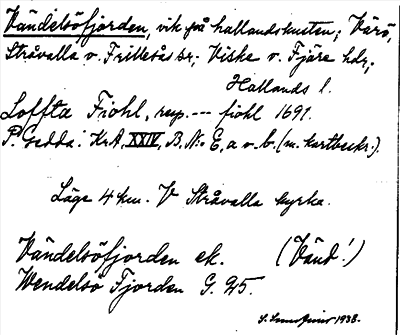 Vändelsöfjorden, vik på hallandskusten; Värö,
Stråvalla o. Frillesås sr; Viske o. Fjäre hdr;
Hallands l.
Loffta Fiohl, resp. --- fiohl 1691.
P. Gedda: KrA, XXIV, B, No E, a o. b. (m. kartbeskr.).
Läge 4 km. V Stråvalla kyrka.
Vändelsöfjorden ek. (Vänd!)
Wendelsö Fjorden G. 25.
1938.